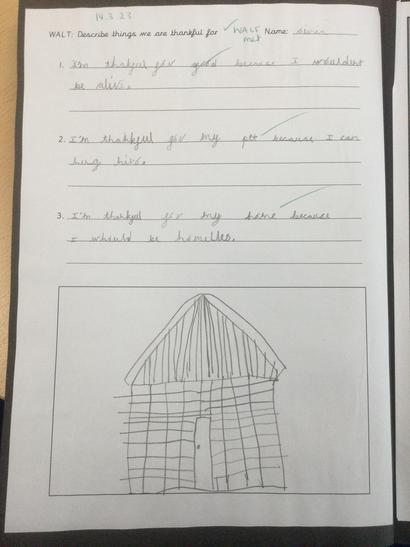 14.3.23
WALT: Describe things we are thankful for WALT met Name:
1. I'm thakful for good because I wouldent
be alive.
2. I'm thahkful for my pet because I can
hug him.
3. I'm thankful for my home because
I whould be homelles.